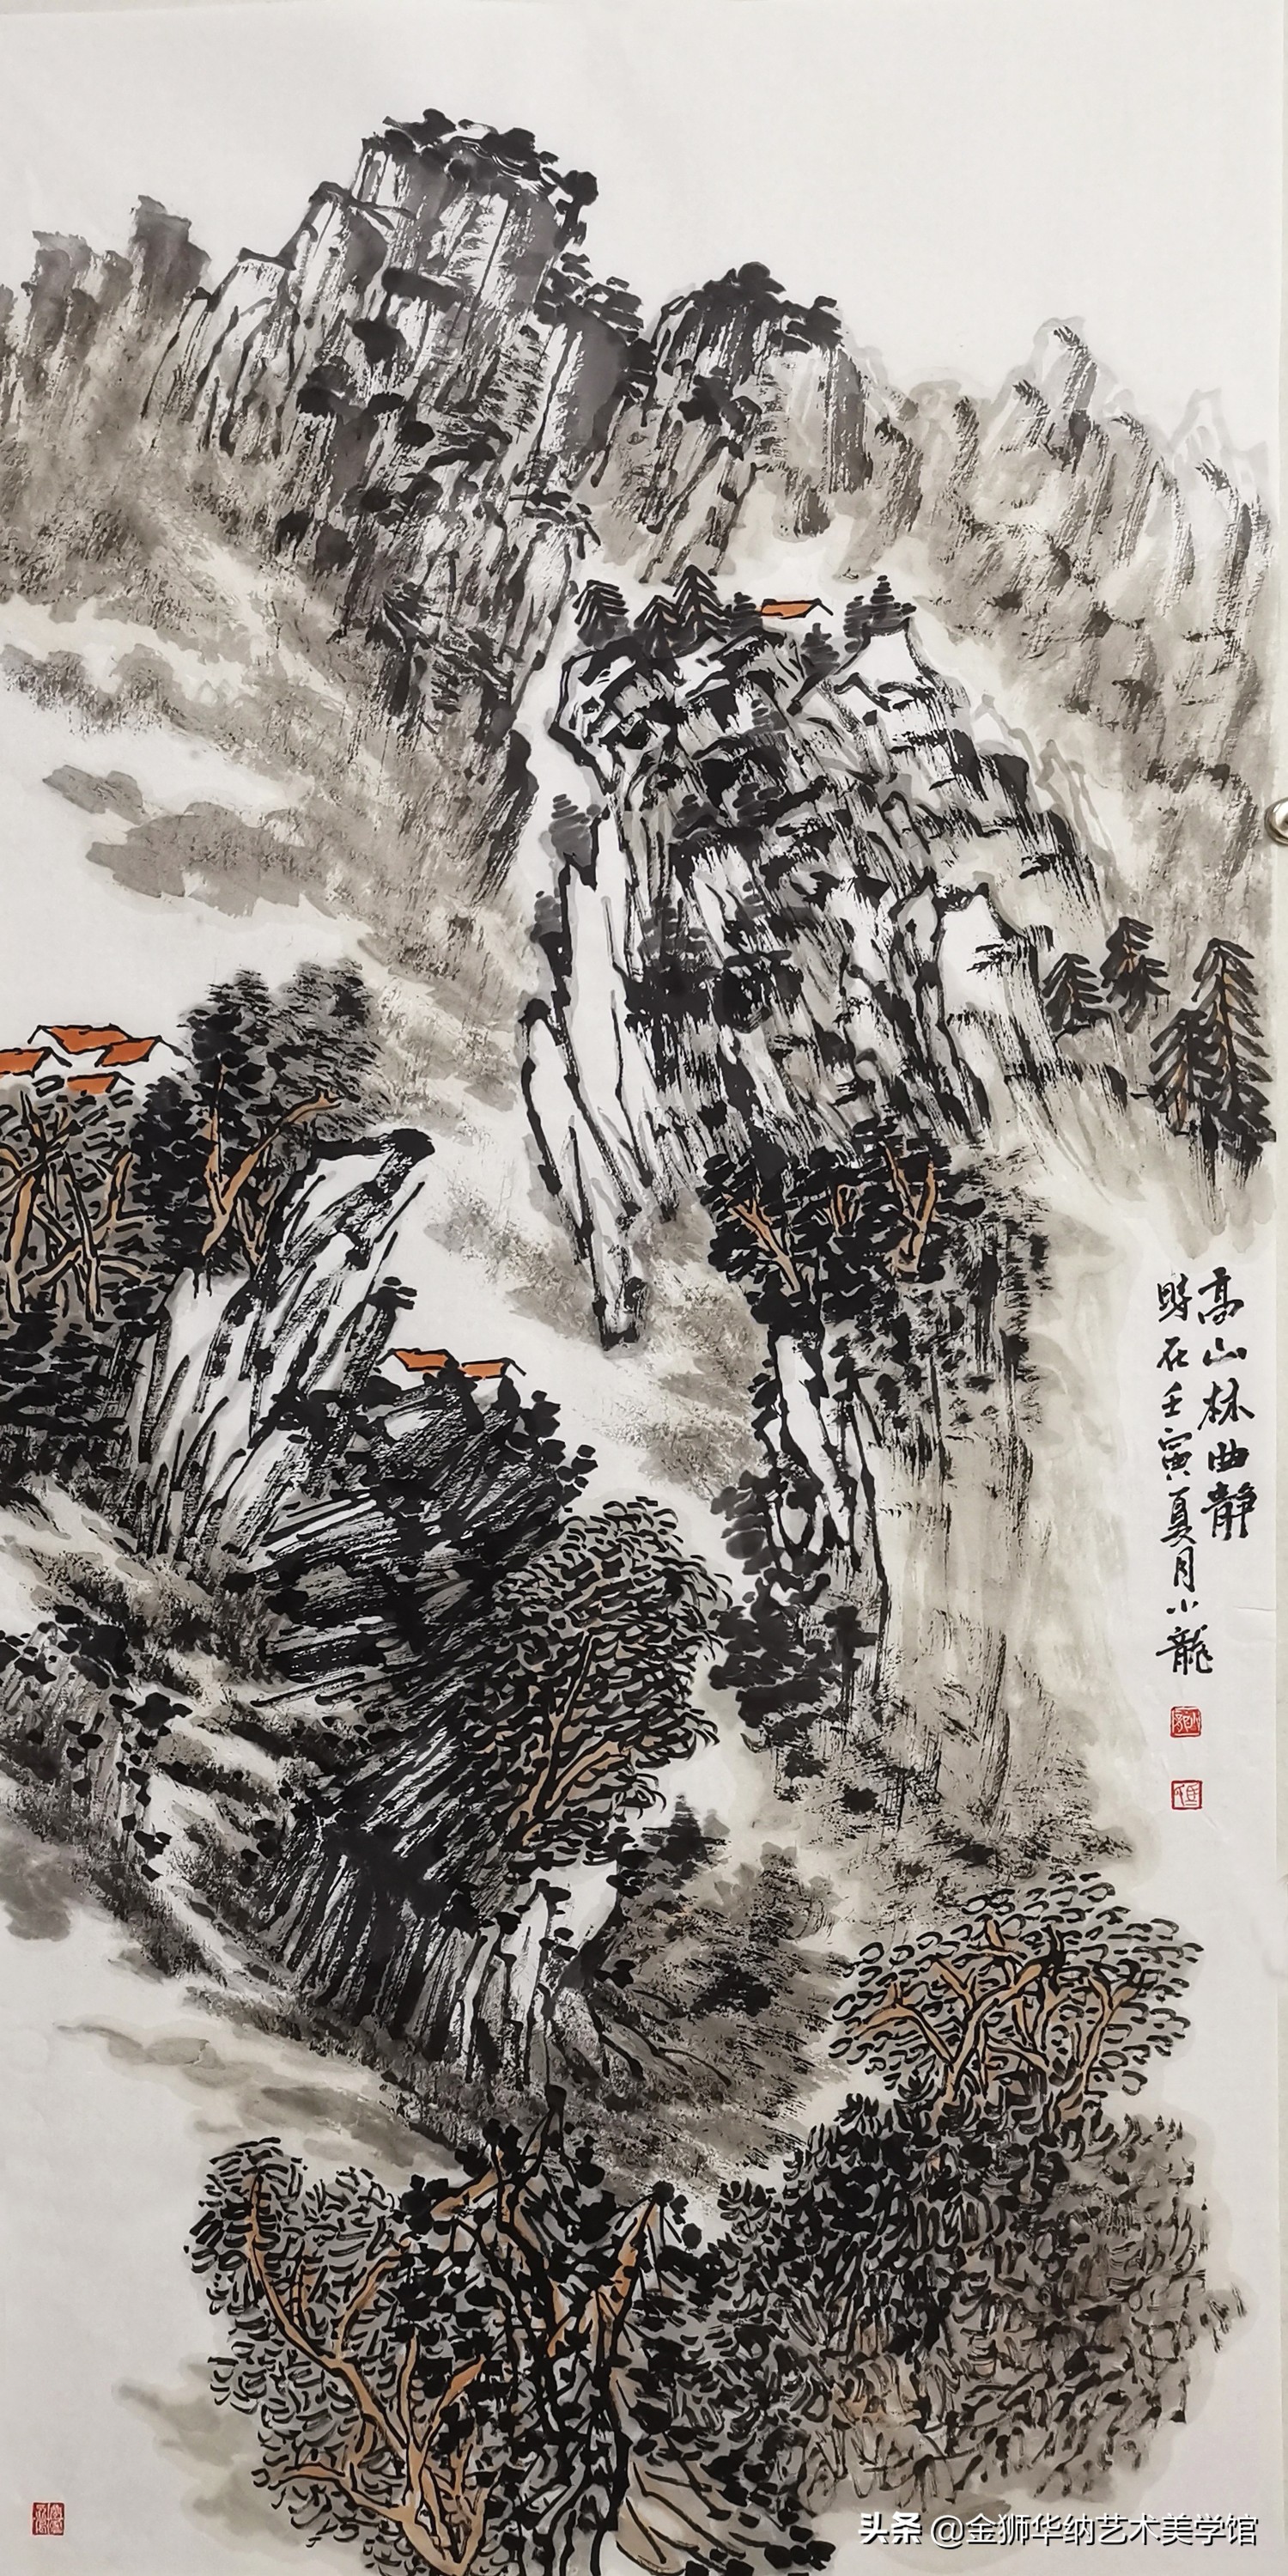 高山林曲静
时在壬寅夏月小龍
头条 @金狮华纳艺术美学馆